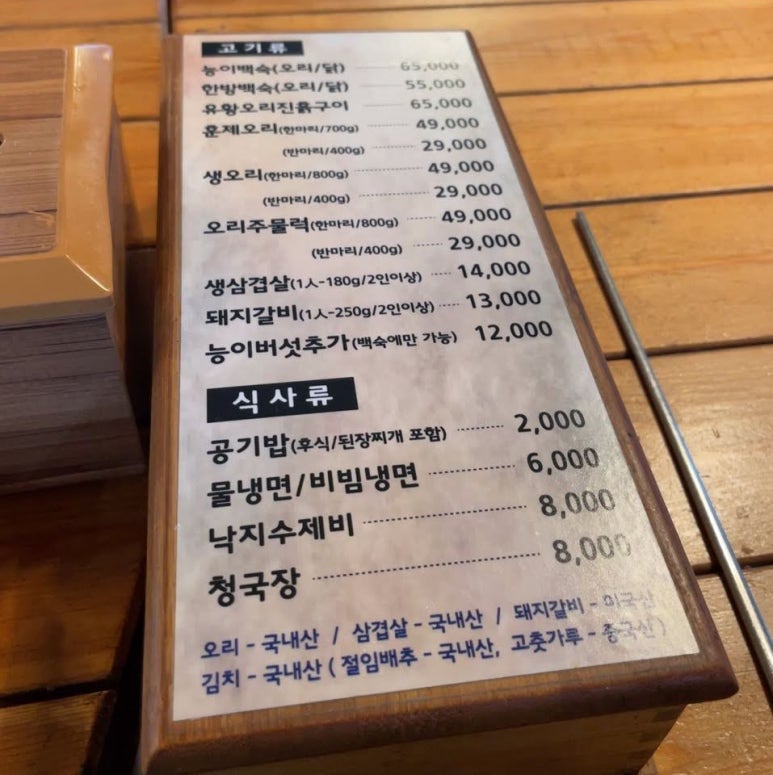 고기류
능이백숙(오리/닭) 65,000
한방백숙(오리/닭) 55,000
유황오리진흙구이 65,000
훈제오리(한마리/700g) 49,000
(반마리/400g) 29,000
생오리(한마리/800g) 49,000
(반마리/400g) 29,000
오리주물럭(한마리/800g) 49,000
(반마리/400g) 29,000
생삼겹살(1人-180g/2인이상) 14,000
돼지갈비(1人-250g/2인이상) 13,000
능이버섯추가(백숙에만 가능) 12,000
식사류
공기밥(후식/된장찌개 포함) 2,000
물냉면/비빔냉면 6,000
낙지수제비 8,000
청국장 8,000
오리 - 국내산 / 삼겹살 - 국내산 / 돼지갈비 - 미국산
김치 - 국내산 ( 절임배추 - 국내산, 고춧가루 - 중국산 )